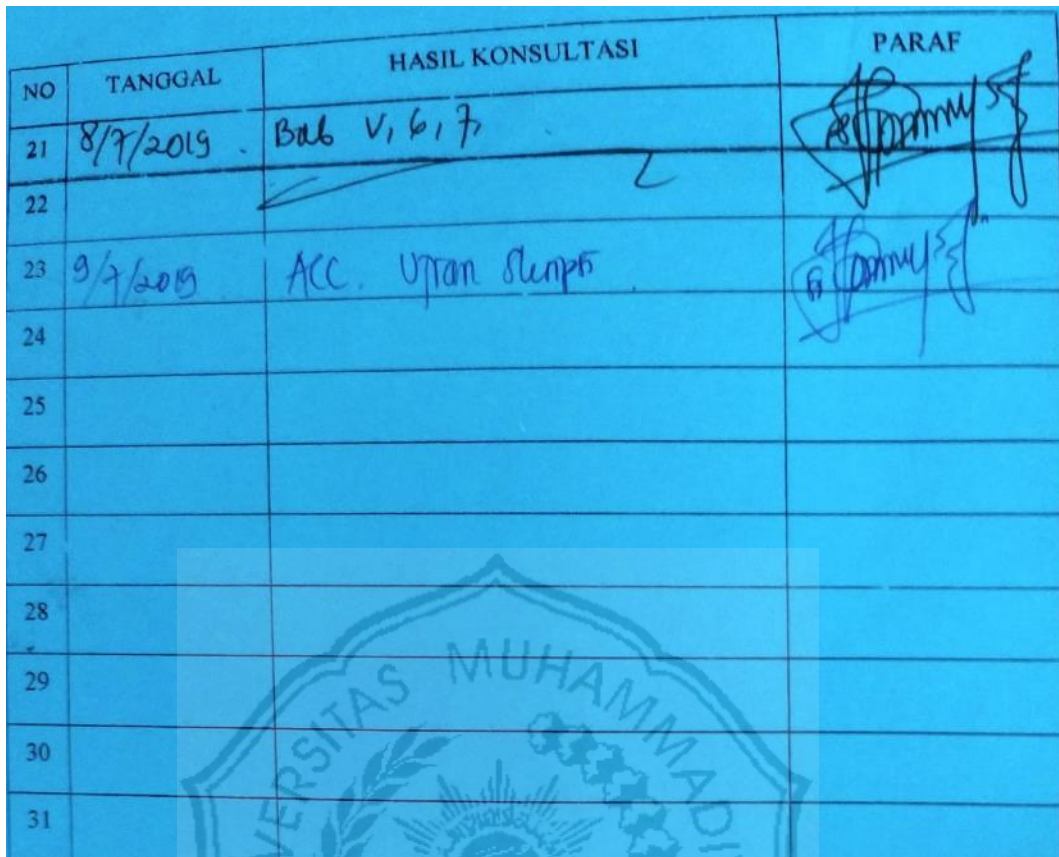 NO TANGGAL HASIL KONSULTASI PARAF
21 8/7/2019. Bab V, 6, 7,
22
23 9/7/2019 ACC. Ujian
24
25
26
27
28
29
30
31
VERSITAS MUHAMMADI